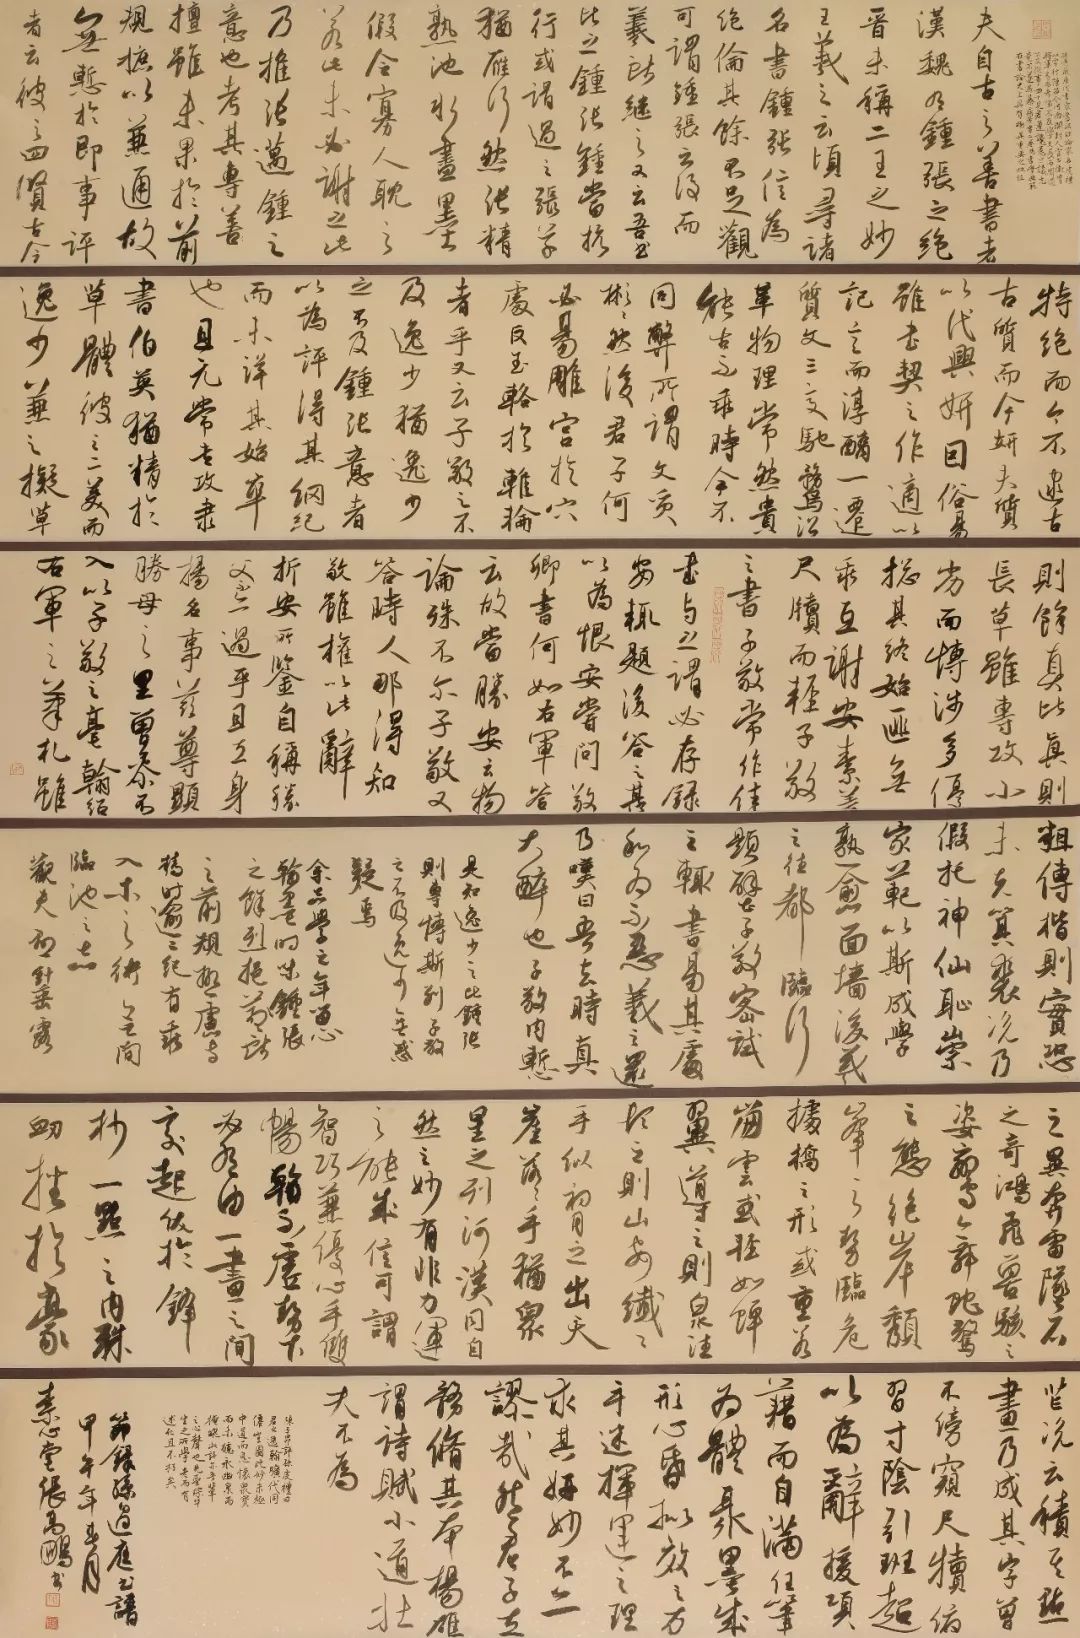 夫自古之善書者
漢魏有鍾張之絕
晉末稱二王之妙
王羲之云頃尋諸
名書鍾張信為
絕倫其餘不足觀
可謂鍾張云沒而
羲獻繼之又云吾書
比之鍾張鍾當抗
行或謂過之張草
猶當雁行然張精
熟池水盡墨
假令寡人耽之
若此未必謝之此
乃推張邁鍾之
意也考其專善
擅雖未果於前
規摭以兼通故
無慙於即事評
者云彼之四賢古今
特絕而今不逮古
古質而今妍夫質
以代興妍因俗易
雖書契之作適以
記言而淳醨一遷
質文三變馳騖沿
革物理常然貴
能古不乖時今不
同弊所謂文質
彬彬然後君子何
必易雕宮於穴
處反玉輅於椎輪
者乎又云子敬之不
及逸少猶逸少
之不及鍾張意者
以為評得其綱紀
而未詳其始卒
也且元常專攻隸
書伯英猶精於
草體彼之二美而
逸少兼之擬草
則餘真比真則
長草雖專攻小
劣而博涉多優
揔其終始匪無
乖互謝安素善
尺牘而輕子敬
之書子敬常作佳
書與之謂必存錄
安輒題後答之甚
以為恨安嘗問敬
卿書何如右軍答
云故當勝安云物
論殊不爾子敬又
答時人那得知
敬雖權以此辭
折安所鑒自稱勝
父不亦過乎且立身
揚名事茲尊顯
勝母之里曾參不
入以子敬之豪翰紹
右軍之筆札雖
粗傳楷則實恐
未克箕裘況乃
假托神仙恥崇
家範以斯成學
孰愈面墻後羲
之往都臨行
題壁子敬密拭
之輒書易其處
私為不惡羲之還
乃嘆曰吾去時真
大醉也子敬內慙
是知逸少之比鍾張
則專博斯別子敬
之不及逸少無惑
疑焉
余志學之年留心
翰墨味鍾張
之餘烈挹羲獻
之前規極慮專
精時逾二紀有乖
入木之術無間
臨池之志
觀夫懸針垂露
之異奔雷墜石
之奇鴻飛獸駭之
姿鸞舞蛇驚
之態絕岸頹
峯之勢臨危
據槁之形或重若
崩雲或輕如蟬
翼導之則泉注
頓之則山安纖纖
乎似初月之出天
崖落落乎猶眾
星之列河漢同自
然之妙有非力運
之能成信可謂
智巧兼優心手雙
暢翰不虛動下
必有由一畫之間
變起伏於鋒
杪一點之內殊
衄挫於豪
芒況云積其點
畫乃成其字曾
不傍窺尺牘俯
習寸陰引班超
以為辭援項
藉而自滿任筆
為體聚墨成
形心昏擬效之方
手迷揮運之理
求其妍妙不亦
謬哉然君子立
身務脩其本楊雄
謂詩賦小道壯
夫不為
節錄孫過庭書譜
甲午年春月